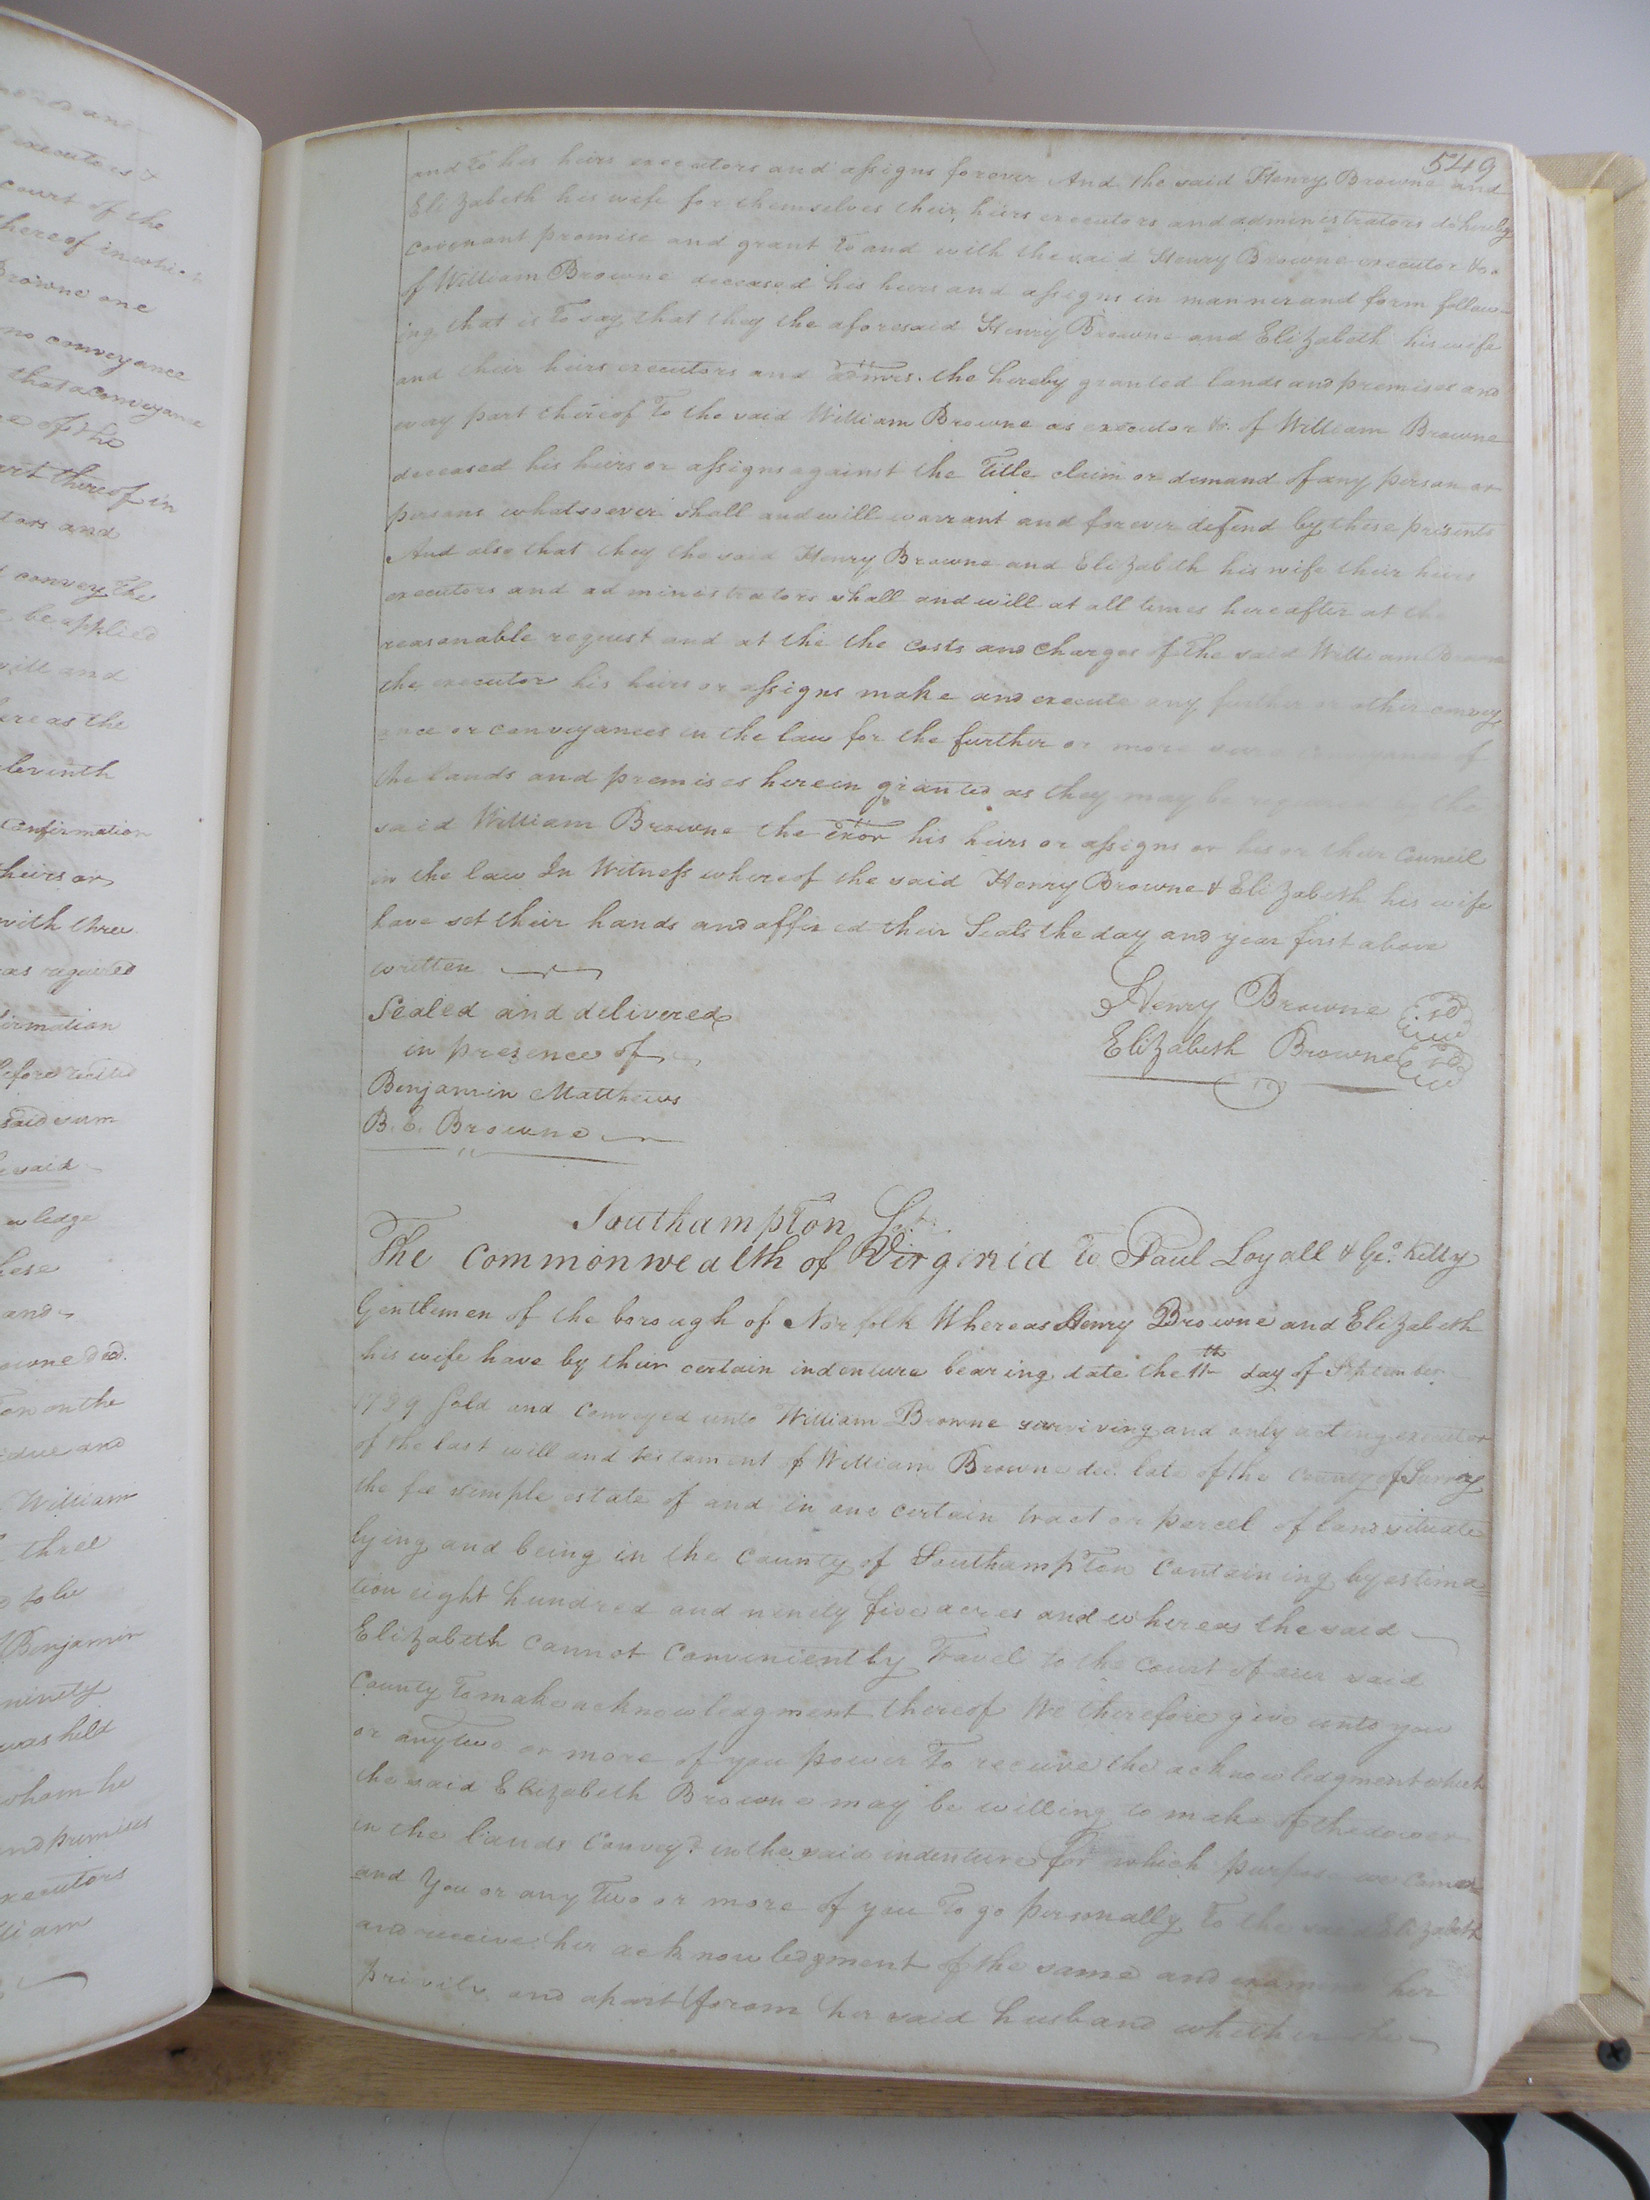 and
executors &
court of the
thereof in which
Browne one
no conveyance
that a conveyance
of the
part thereof in
and
convey the
be applied
will and
whereas the
eleventh
confirmation
heirs or
with three
as required
before recited
said sum
said
these
and
Browne decd.
on the
and
William
three
to be
Benjamin
ninety
was held
whom he
and premises
executors
549
and to his heirs executors and assigns forever And the said Henry Browne and
Elizabeth his wife for themselves their heirs executors and administrators do hereby
covenant promise and grant to and with the said Henry Browne executor &ca
of William Browne deceased his heirs and assigns in manner and form follow-
ing that is to say, that they the aforesaid Henry Browne and Elizabeth his wife
and their heirs executors and admrs. the hereby granted lands and premises and
every part thereof to the said William Browne as executor &c. of William Browne
deceased his heirs or assigns against the Title claim or demand of any person or
persons whatsoever shall and will warrant and forever defend by these presents
And also that they the said Henry Browne and Elizabeth his wife their heirs
executors and administrators shall and will at all times hereafter at the
reasonable request and at the the costs and charges of the said William Browne
the executor his heirs or assigns make and execute any further or other convey
ance or conveyances in the law for the further or more sure conveyance of
the lands and premises herein granted as they may be the
said William Browne the exor his heirs or assigns or his or their Council
in the law In Witness whereof the said Henry Browne & Elizabeth his wife
have set their hands and affixed their Seals the day and year first above
written
Henry Browne
Sealed and delivered
Elizabeth Browne
in presence of
Benjamin Matthews
B. E. Browne
Southampton Sct.
The Commonwealth of Virginia to Paul Loyall & Geo. Kelly
Gentlemen of the borough of Norfolk Whereas Henry Browne and Elizabeth
his wife have by their certain indenture bearing date the 11th day of September
1789 Sold and Conveyed unto William Browne surviving and only acting executor
of the last will and testament of William Browne dec. late of the County of Surry
the fee simple estate of and in one certain tract or parcel of land situate
lying and being in the County of Southampton Containing by estima
tion eight hundred and ninety five acres and whereas the said
Elizabeth Cannot Conveniently Travel to the Court of our said
County to make acknowledgment thereof We therefore give unto you
or any two or more of you power to receive the acknowledgment which
the said Elizabeth Browne may be willing to make of the dower
in the lands Convey'd in the said indenture for which purpose we Comm
and You or any Two or more of you to go personally to the said Elizabeth
and receive her acknowledgment of the same and examine her
privily and apart forom her said husband whether she